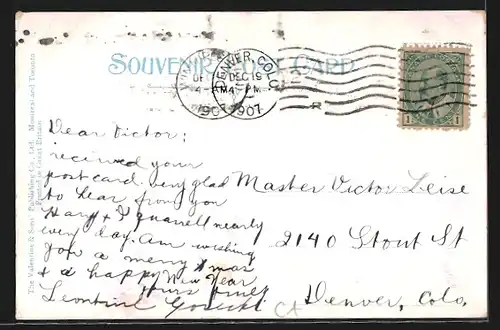 SOUVENIR POST CARD
DENVER, COLO.
DEC 19
4 PM
1907
1907
1 1
The Valentine & Sons' Publishing Co., Ltd. Montreal and Toronto
Printed in Great Britain
Dear Victor:
received your
postcard. very glad
to hear from you
Harry & I quarrell nearly
every day. Am wishing
you a merry Xmas
& a happy New Year
Yours truly
Master Victor Leise
2140 Stout St
Denver, Colo.